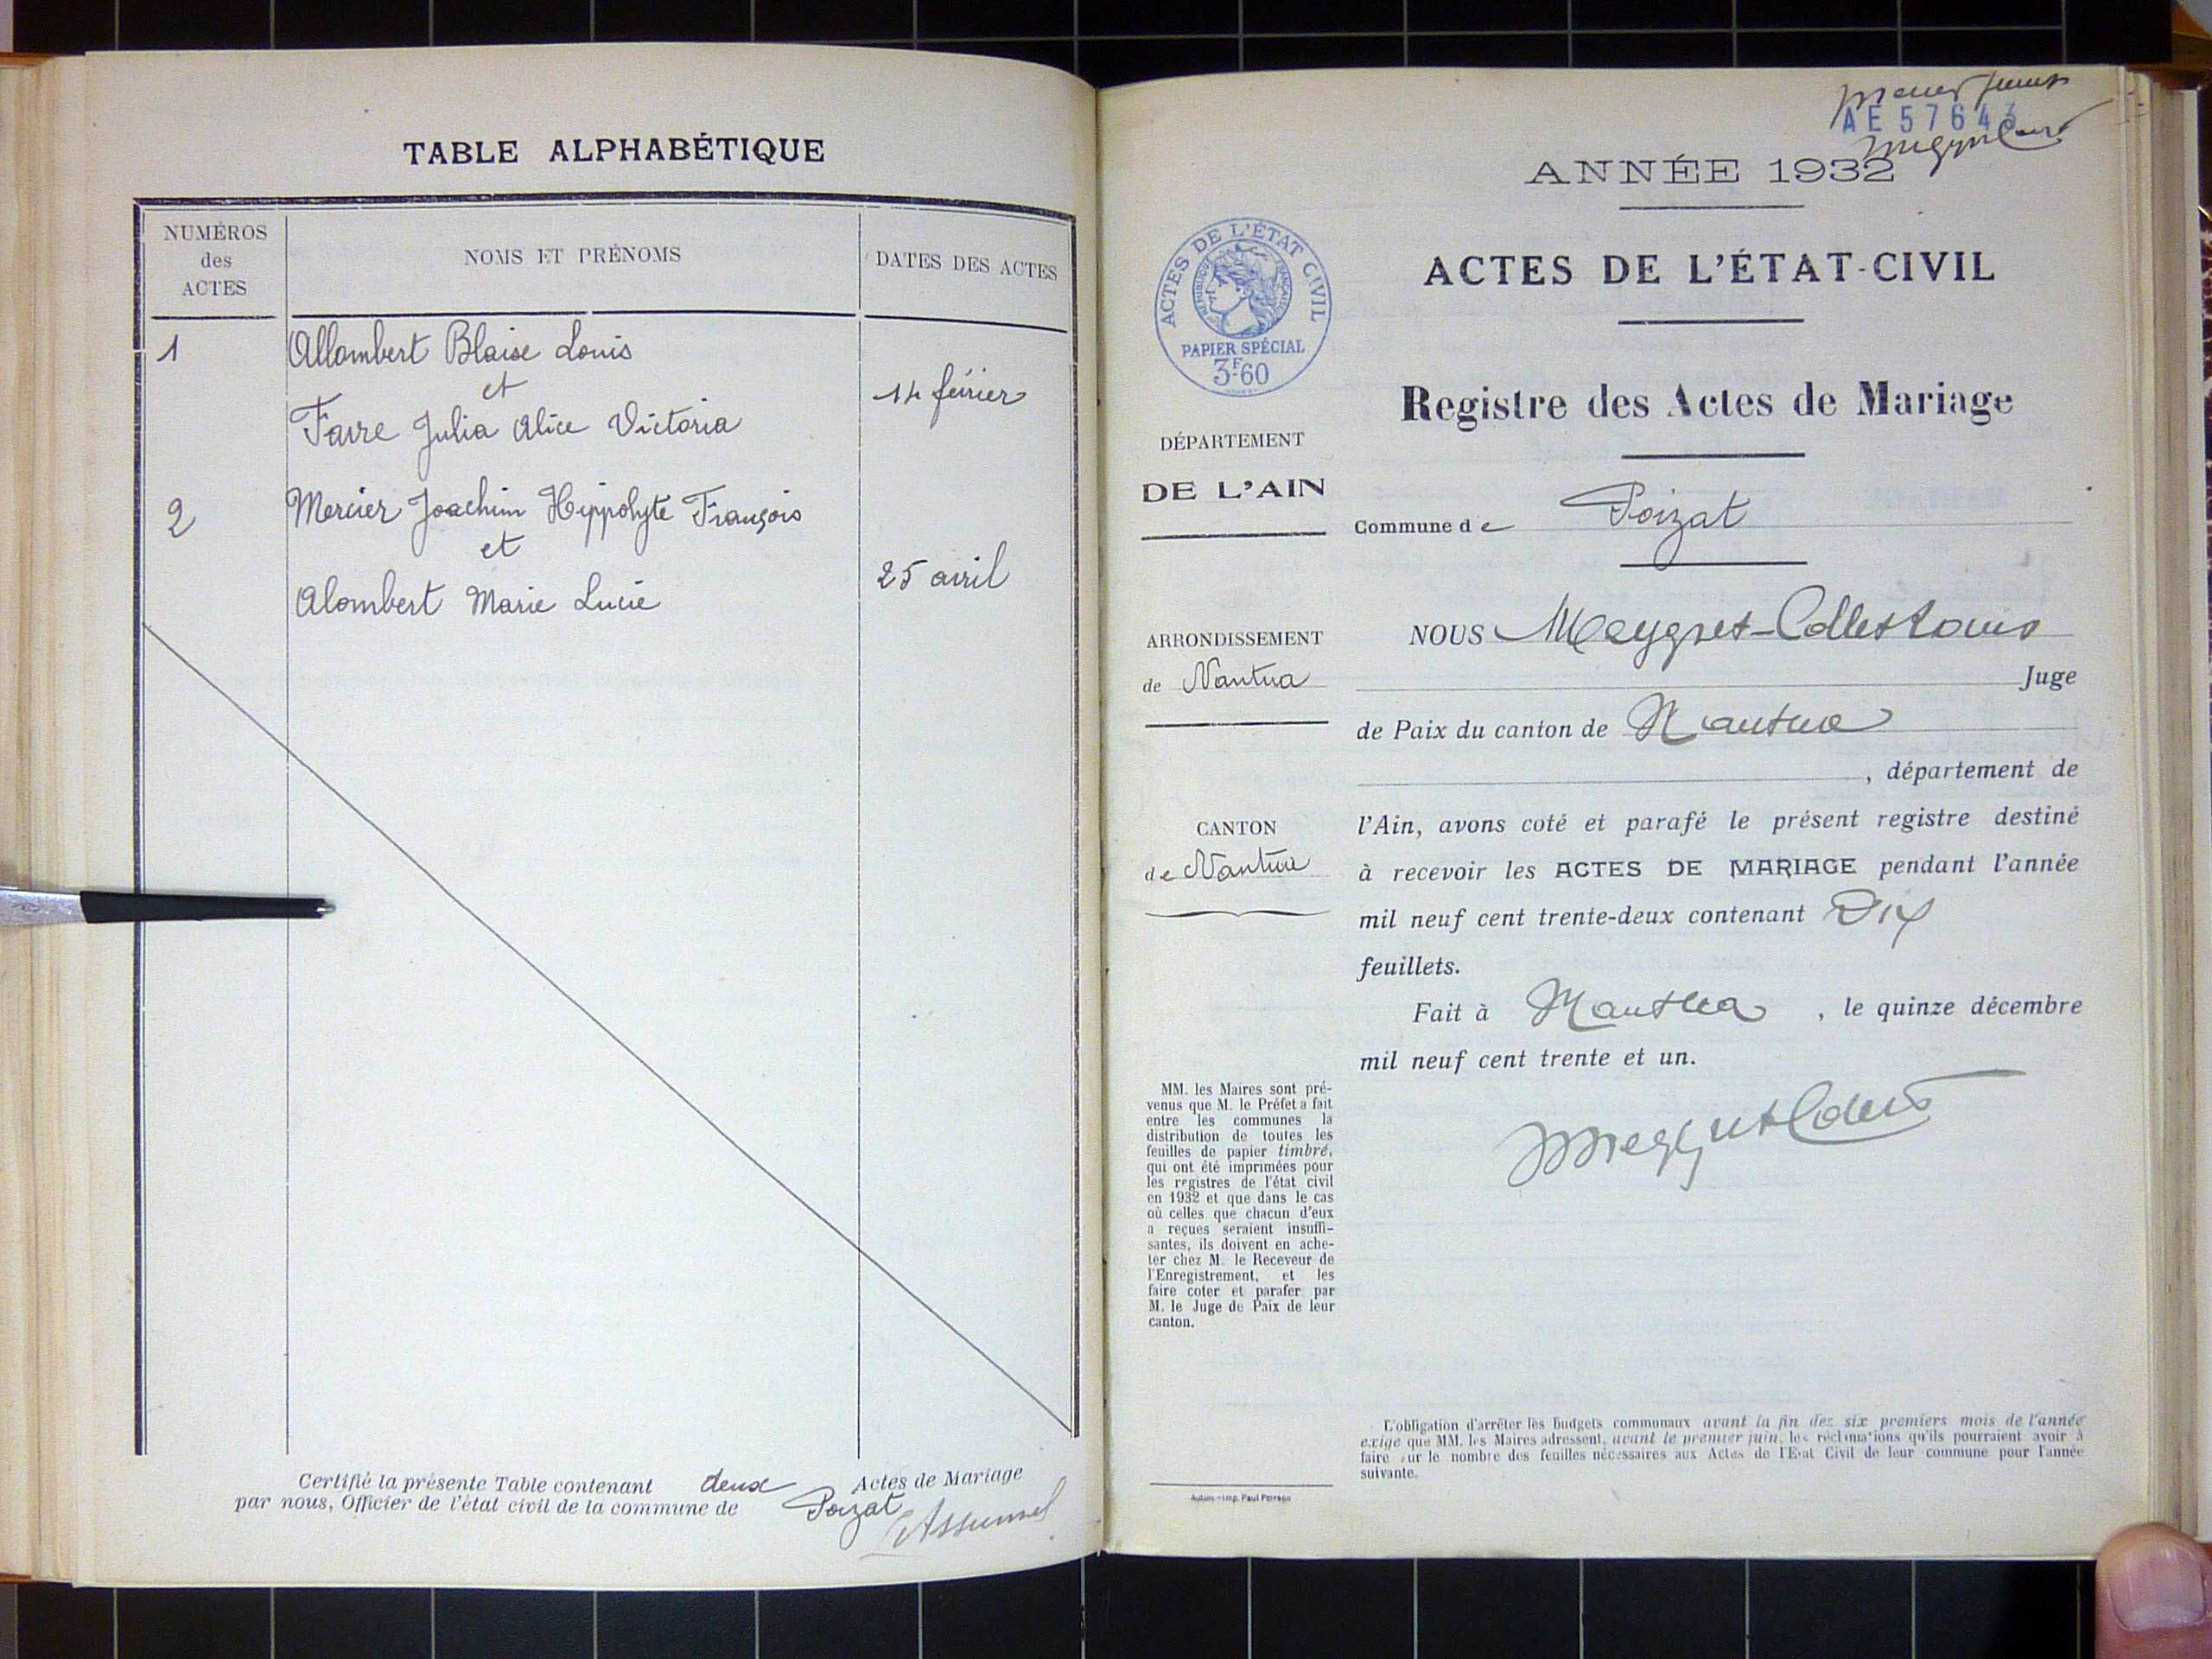 TABLE ALPHABÉTIQUE
NUMÉROS
des
ACTES
NOMS ET PRÉNOMS
DATES DES ACTES
1
Allombert Blaise Louis
et
14 février
Favre Julia Alice Victoria
2
Mercier Joachim Hippolyte François
et
25 avril
Alombert Marie Lucie
Certifié la présente Table contenant deux Actes de Mariage
par nous, Officier de l'état civil de la commune de Poizat
AE 57643
ANNÉE 1932
ACTES DE L'ÉTAT CIVIL
RÉPUBLIQUE FRANÇAISE
PAPIER SPÉCIAL
3F60
ACTES DE L'ÉTAT-CIVIL
Registre des Actes de Mariage
DÉPARTEMENT
DE L'AIN
Commune de Poizat
ARRONDISSEMENT
de Nantua
CANTON
de Nantua
NOUS Meygret-Collet Louis
Juge
de Paix du canton de Nantua
, département de
l'Ain, avons coté et parafé le présent registre destiné
à recevoir les ACTES DE MARIAGE pendant l'année
mil neuf cent trente-deux contenant Dix
feuillets.
Fait à Nantua , le quinze décembre
mil neuf cent trente et un.
MM. les Maires sont pré-
venus que M. le Préfet a fait
entre les communes la
distribution de toutes les
feuilles de papier timbré,
qui ont été imprimées pour
les registres de l'état civil
en 1932 et que dans le cas
où celles que chacun d'eux
a reçues seraient insuffi-
santes, ils doivent en ache-
ter chez M. le Receveur de
l'Enregistrement, et les
faire coter et parafer par
M. le Juge de Paix de leur
canton.
L'obligation d'arrêter les budgets communaux avant la fin des six premiers mois de l'année
exige que MM. les Maires adressent, avant le premier juin, les réclamations qu'ils pourraient avoir à
faire sur le nombre des feuilles nécessaires aux Actes de l'Etat Civil de leur commune pour l'année
suivante.
Autun. - Imp. Paul